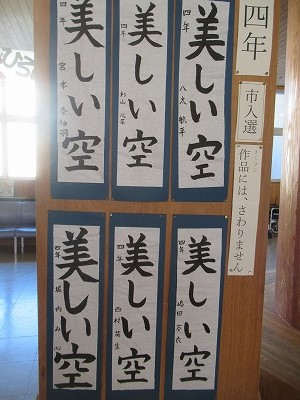 四年
市入選
作品には、さわりません
さくひん
美しい空
四年 八太
美しい空
四年
美しい空
四年 宮本
美しい空
四年 嶋田
美しい空
四年 西村
美しい空
四年 堀内
ひろ